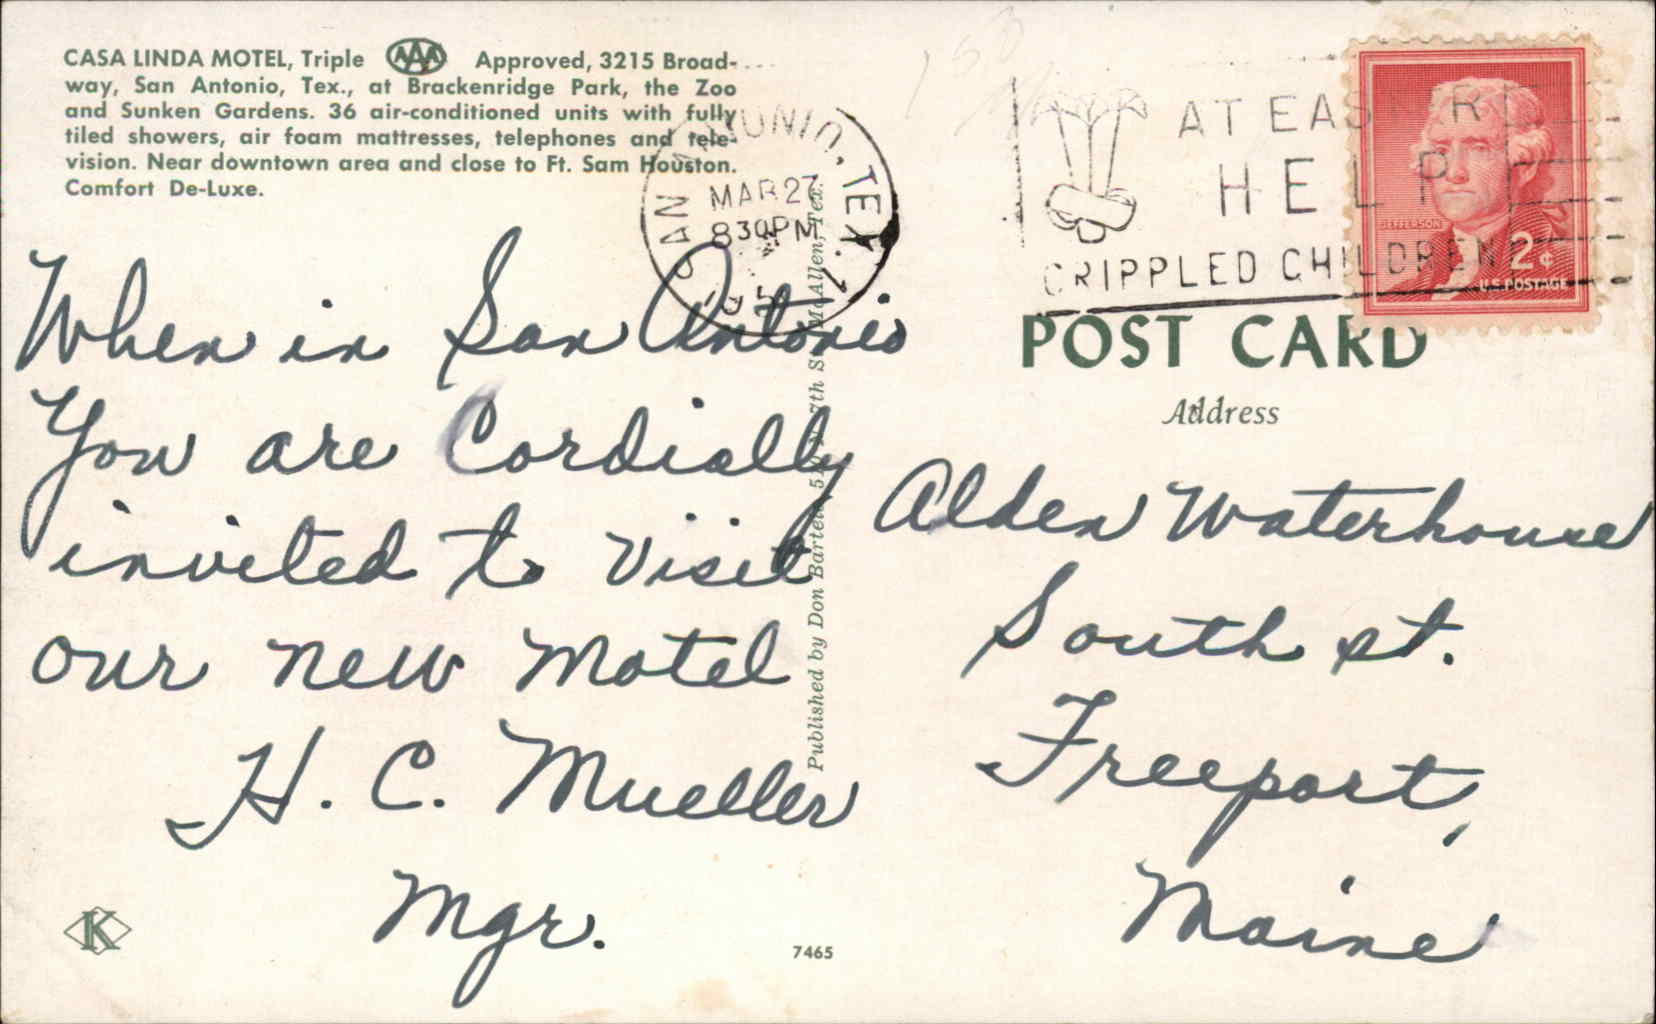 CASA LINDA MOTEL, Triple AAA Approved, 3215 Broad-
way, San Antonio, Tex., at Brackenridge Park, the Zoo
and Sunken Gardens. 36 air-conditioned units with fully
tiled showers, air foam mattresses, telephones and tele-
vision. Near downtown area and close to Ft. Sam Houston.
Comfort De-Luxe.
When in San Antonio
You are Cordially
invited to visit
our new Motel
H. C. Mueller
Mgr.
K
7465
SAN ANTONIO, TEX.
MAR 27
830 PM
Published by Don Bartels, St., McAllen, Tex.
AT EASTER
HELP
CRIPPLED CHILDREN
JEFFERSON
2¢
U.S. POSTAGE
POST CARD
Address
Alden Waterhouse
South st.
Freeport,
Maine